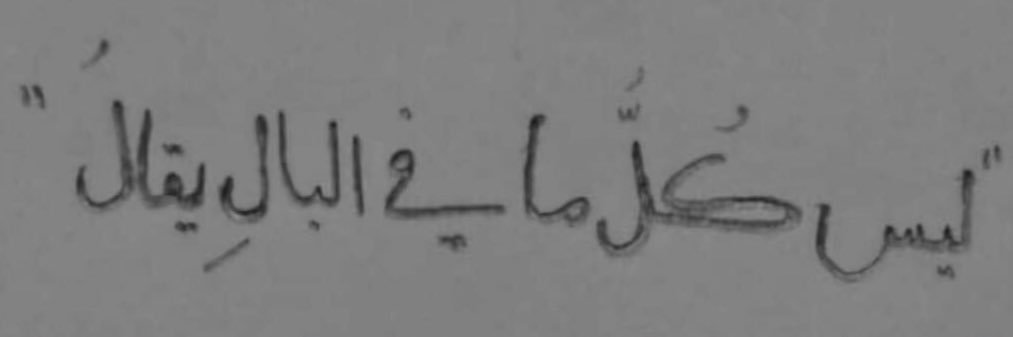 "ليس كُلُّ ما في البالِ يقالُ"